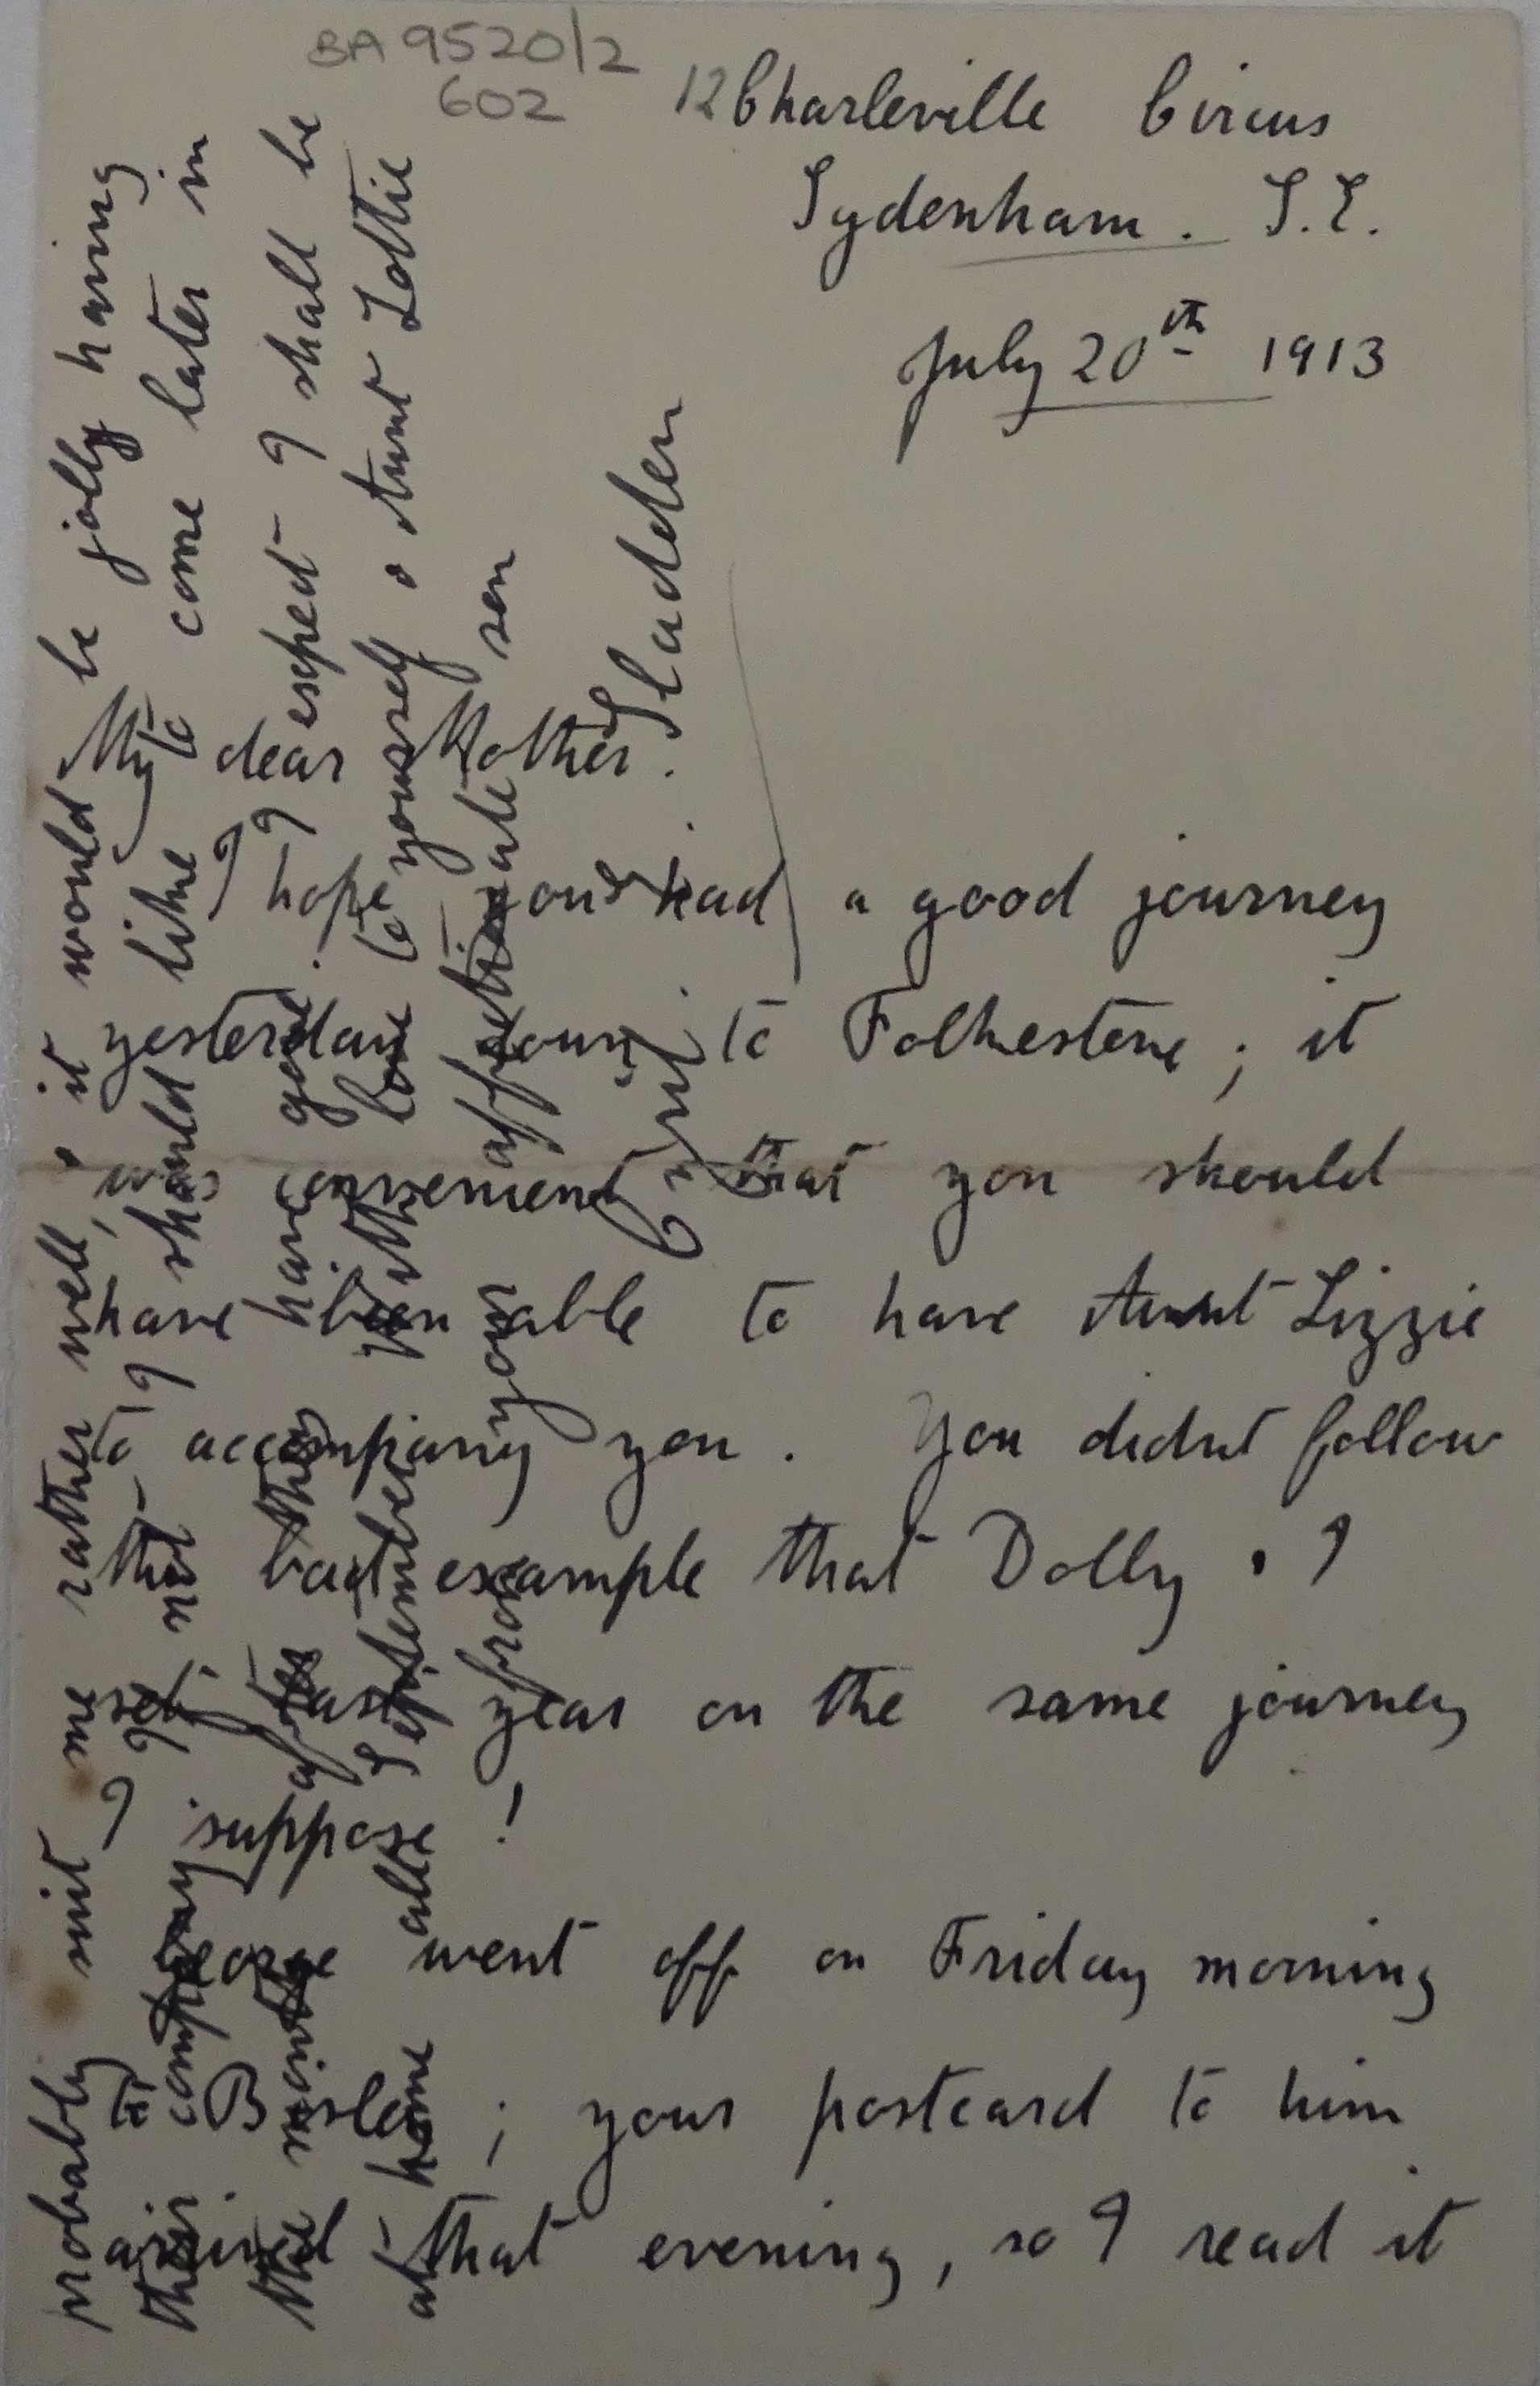 BA 9520/2
602
12 Charleville Circus
Sydenham. S.E.
July 20th 1913
My dear Mother.
I hope you had a good journey
yesterday down to Folkestone; it
was convenient that you should
have been able to have Aunt Lizzie
to accompany you. You didnt follow
the bad example that Dolly & I
set last year on the same journey
I suppose!
George went off on Friday morning
to Bisley; your postcard to him
arrived that evening, so I read it
probably suit me rather well, & it would be jolly having
their company. If not I should like to come later in
the month after they have gone. I expect I shall be
at home all September. With love to yourself & Aunt Lottie
from your affectionate son
Cyril E. Sladden